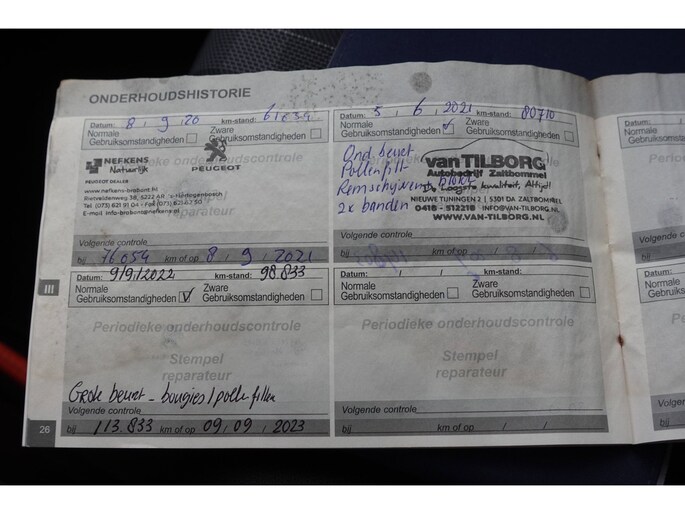 ONDERHOUDSHISTORIE
Datum: 8 , 9 , 20 km-stand:
Normale Gebruiksomstandigheden
Zware Gebruiksomstandigheden
Periodieke onderhoudscontrole
NEFKENS
Natuurlijk
PEUGEOT
PEUGEOT DEALER
www.nefkens-brabant.nl
Rietveldenweg 38, 5222 AR 's-Hertogenbosch
Volgende controle
bij 76054 km of op 8 , 9 , 2021
Datum: 5 , 6 , 2021 km-stand: 80710
Normale Gebruiksomstandigheden
Zware Gebruiksomstandigheden
Ond beurt
Pollenfilt
Remschijven
2x banden
van TILBORG
Autobedrijf Zaltbommel
De Hoogste kwaliteit, Altijd!
NIEUWE TUNINGEN 2 | 5301 DA ZALTBOMMEL
0418 - 512218 INFO@VAN-TILBORG.NL
WWW.VAN-TILBORG.NL
Volgende controle
bij km of op
III
Datum: 9/9/2022 km-stand: 98.833
Normale Gebruiksomstandigheden
Zware Gebruiksomstandigheden
Periodieke onderhoudscontrole
Stempel
reparateur
Grote beurt - bougies / pollen filter
Volgende controle
bij 113.833 km of op 09,09, 2023
Datum: / / km-stand:
Normale Gebruiksomstandigheden
Zware Gebruiksomstandigheden
Periodieke onderhoudscontrole
Stempel
reparateur
Volgende controle
bij km of op / /
26